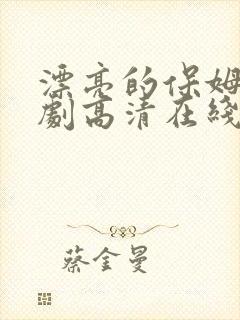 漂亮的保姆
劇高清在綫
蔡金曼